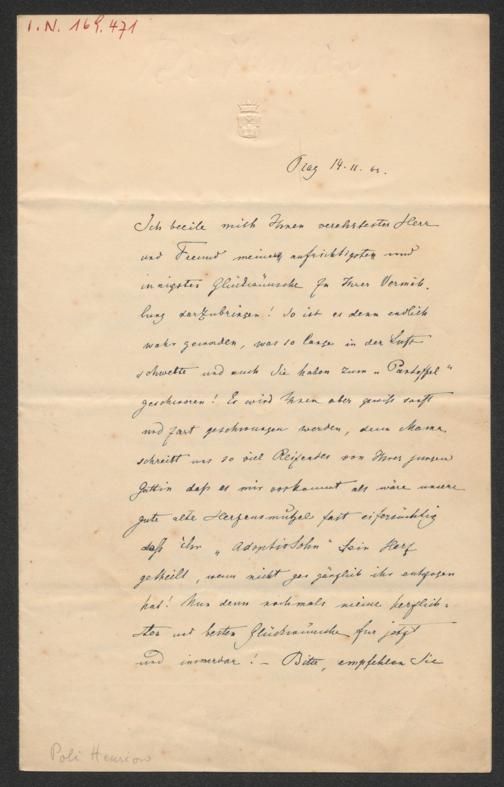 I.N. 169.471
Prag 14.11.
Ich beeile mich Ihnen verehrtester Herr
und Freund meine aufrichtigsten und
innigsten Glückwünsche zu Ihrer Vermäh-
lung darzubringen! So ist es denn endlich
wahr geworden, was so lange in der Luft
schwebte und auch Sie haben zum „Pantoffel"
geschworen! Es wird Ihnen aber gewiss sanft
und zart geschwungen werden, denn Mama
schreibt uns so viel Reizendes von Ihrer jungen
Gattin daß es mir vorkommt als wäre unsere
gute alte Herzensmutzel fast eifersüchtig
daß ihr „Adoptivsohn" sein Herz
getheilt, wenn nicht gar gänzlich ihr entzogen
hat! Nun denn nochmals meine herzlich-
sten und besten Glückwünsche für jetzt
und immerdar! – Bitte, empfehlen Sie
Poli Henrion